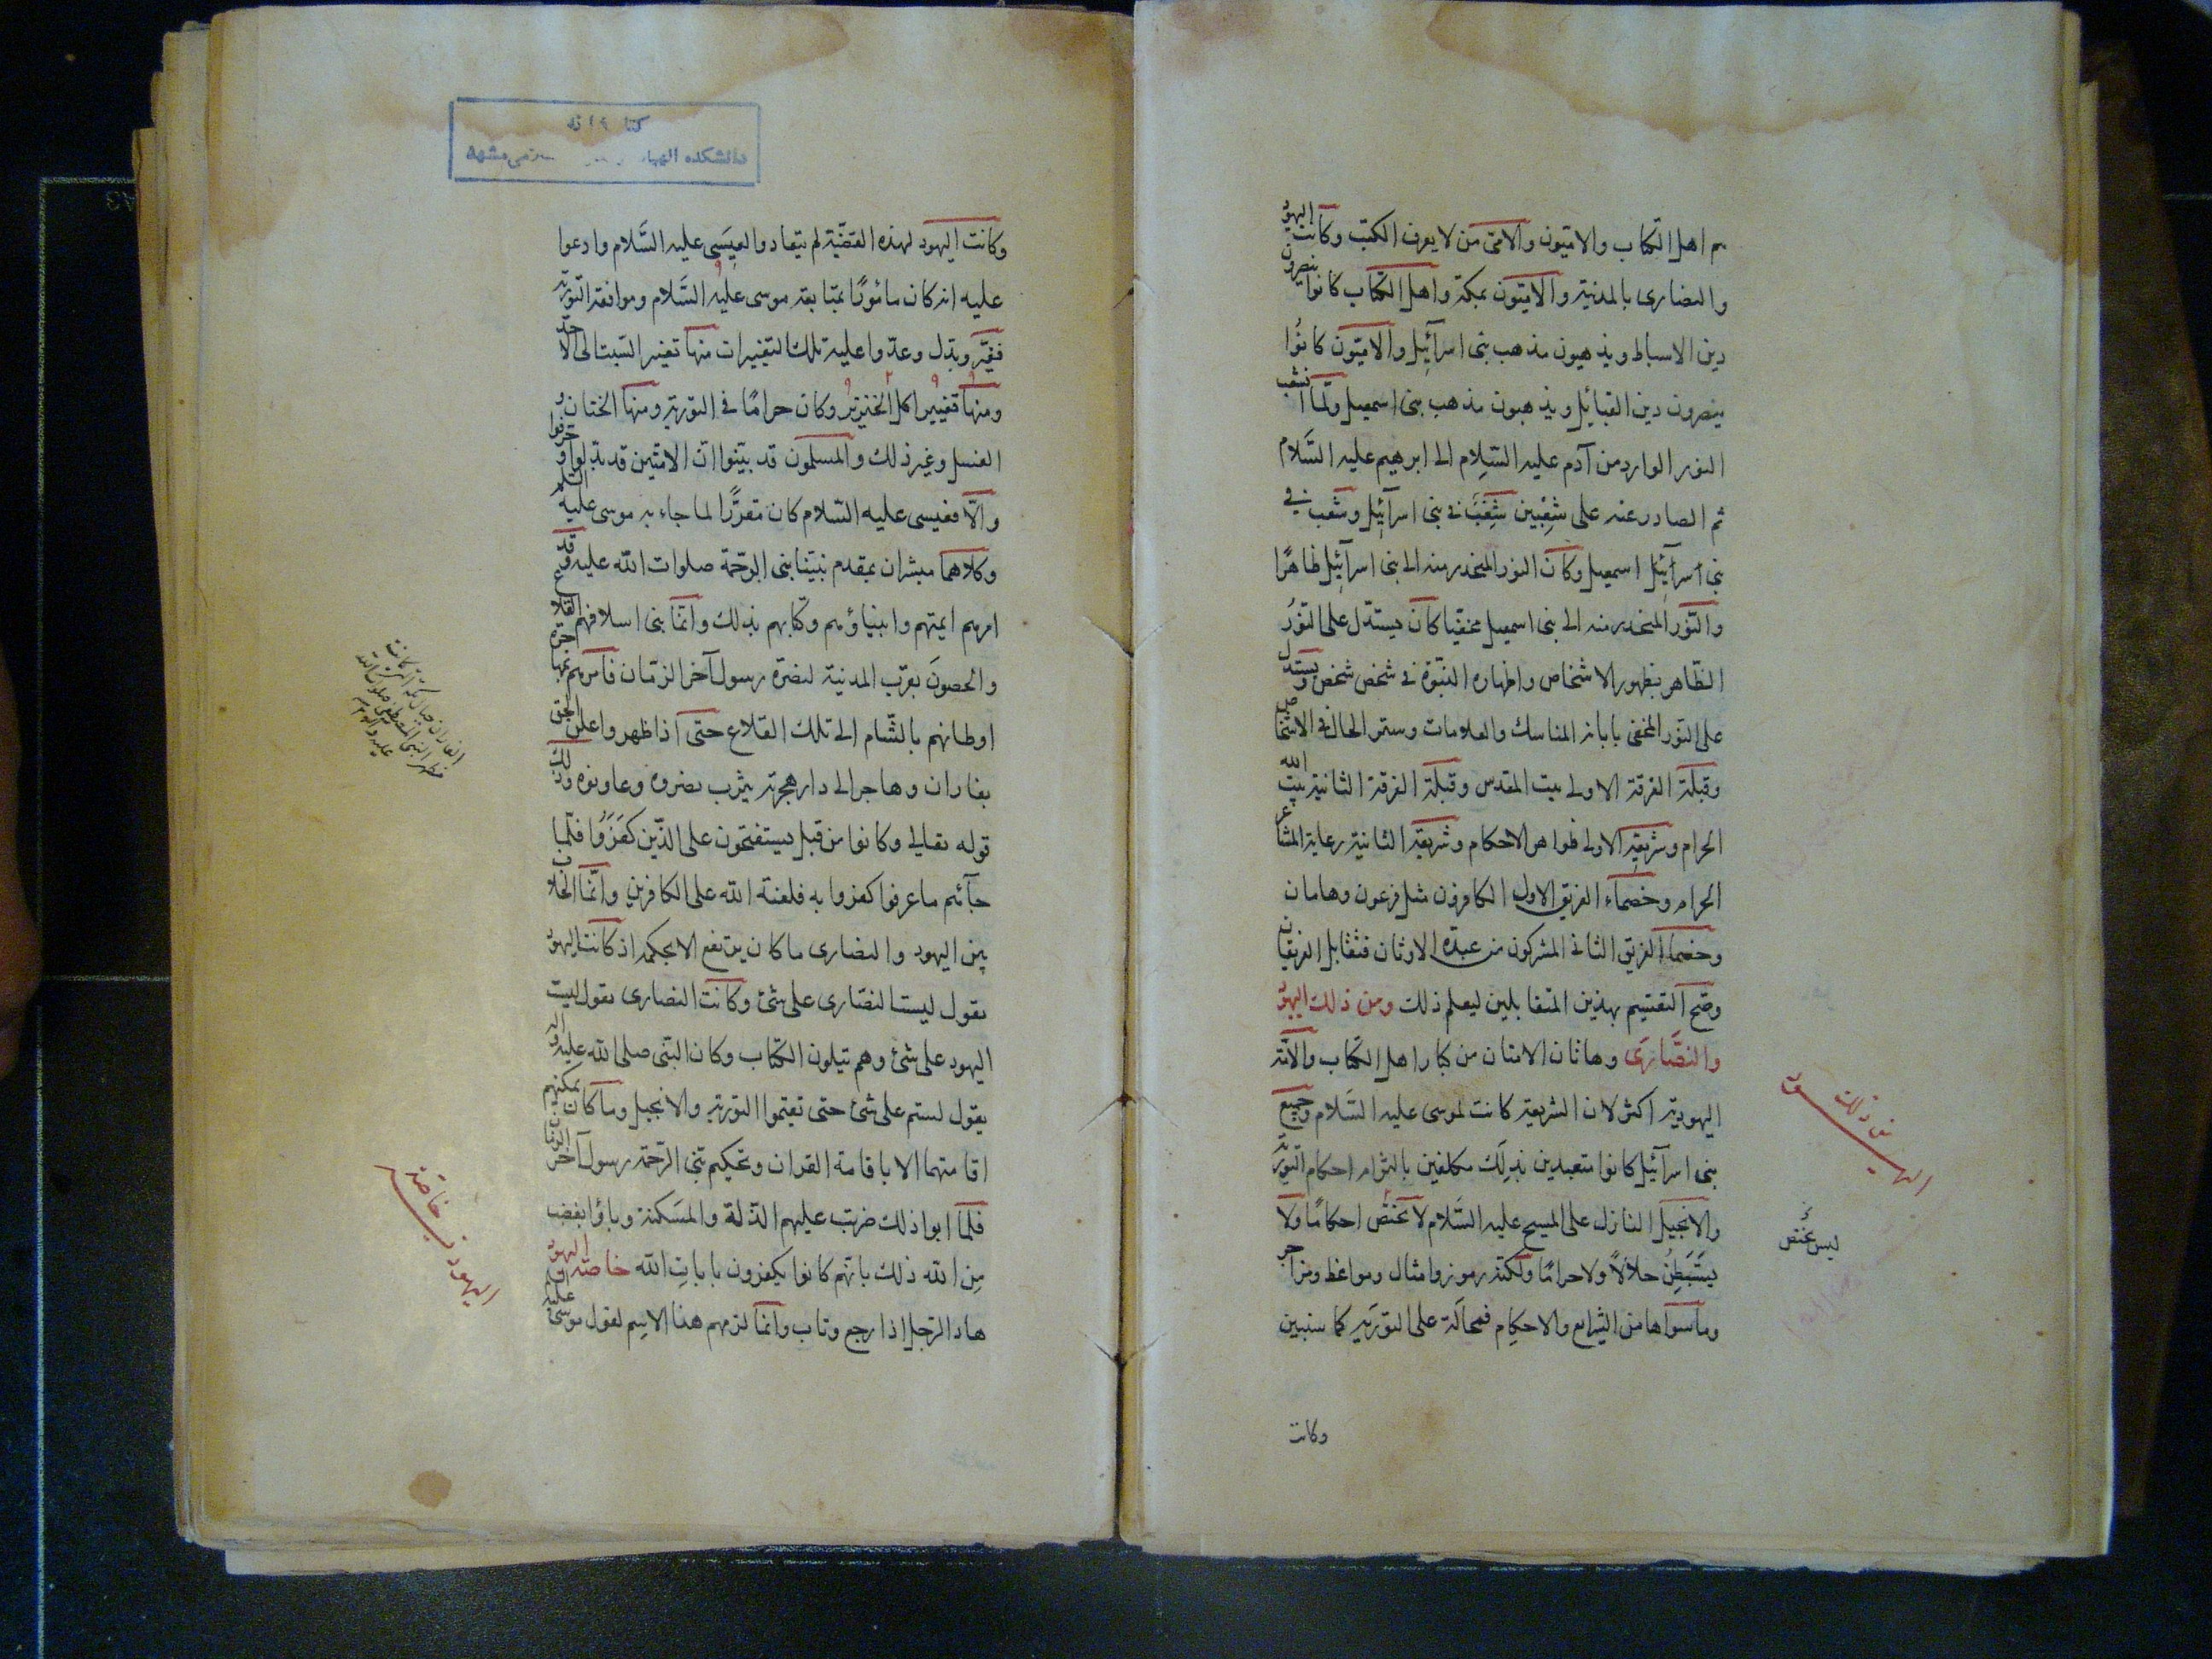 هم اهل الكتاب والاميون والامى من لا يعرف الكتب وكانت اليهود
والنصارى بالمدنية والاميون بمكة واهل الكتاب كانوا ينصرون
دين الاسباط ويذهبون مذهب بنى اسرآئيل والاميون كانوا
ينصرون دين القبائل ويذهبون مذهب بنى اسمعيل ولما انشعب
النور الوارد من آدم عليه السلام الى ابرهيم عليه السلام
ثم الصادر عنه على شعبين شعب فى بنى اسرآئيل وشعب فى
بنى اسرآئيل اسمعيل وكان النور المنحدر منه الى بنى اسرآئيل ظاهرًا
والنور المنحدر منه الى بنى اسمعيل مخفيا كان يستدل على النور
الظاهر بظهور الاشخاص واظهاره النبوة فى شخص شخص ويستدل
على النور المخفى بابانه المناسك والعلامات وستر الحال فى الاشخاص
وقبلة الفرقة الاولى بيت المقدس وقبلة الفرقة الثانية بيت الله
الحرام وشريعة الاولى ظواهر الاحكام وشريعة الثانية رعاية المشاعر
الحرام وخصماء الفريق الاول الكافرون مثل فرعون وهامان
وخصماء الفريق الثانى المشركون من عبدة الاوثان فتقابل الفريقان
وصح التقسيم بهذين المتقابلين ليعلم ذلك ومن ذلك اليهود
والنصارى وهاتان الامتان من كبار اهل الكتاب والامة
اليهودية اكثر لان الشريعة كانت لموسى عليه السلام وجميع
بنى اسرآئيل كانوا متعبدين بذلك مكلفين بالتزام احكام التورية
والانجيل النازل على المسيح عليه السلام لا يختص احكامًا ولا
يستبطن حلالاً ولا حرامًا ولكنه رموز وامثال ومواعظ ومزاجر
وماسواها من الشرايع والاحكام فمحالة على التورية كما سنبين
من ذلك اليهود
ليس يختص
وكانت
وكانت اليهود لهذه القضية لم ينقادوا لعيسى عليه السلام وادعوا
عليه انه كان مامورًا بمتابعة موسى عليه السلام وموافقة التورية
فغير وبدل وعدوا عليه تلك التغييرات منها تغيير السبت الى الاحد
ومنها تغيير اكل الخنزير وكان حرامًا فى التورية ومنها الختان و
الغسل وغير ذلك والمسلمون قد بينوا ان الامتين قد بدلوا وحرفوا
والا فعيسى عليه السلام كان مقررًا لما جاء به موسى عليه السلم
وكلاهما مبشران بمقدم نبينا نبى الرحمة صلوات الله عليه وقد
امرهم ايمتهم وانبياؤهم وكتابهم بذلك وانما بنى اسلافهم القلاع
والحصون بقرب المدنية لنصرة رسول آخر الزمان فامرهم بمهاجرة
اوطانهم بالشام الى تلك القلاع حتى اذا ظهر واعلن الحق
بفاران وهاجر الى دار هجرته يثرب نصروه وعاونوه وذلك
قوله تعالى وكانوا من قبل يستفتحون على الذين كفروا فلما
جآئهم ماعرفوا كفروا به فلعنة الله على الكافرين وانما الخلاف
بين اليهود والنصارى ماكان يرتفع الا بحكمه اذ كانت اليهود
تقول ليست النصارى على شئ وكانت النصارى تقول ليست
اليهود على شئ وهم يتلون الكتاب وكان النبى صلى الله عليه واله
يقول لستم على شئ حتى تقيموا التورية والانجيل وماكان يمكنهم
اقامتهما الا باقامة القران وتحكيم نبى الرحمة رسول آخر الزمان
فلما ابوا ذلك ضربت عليهم الذلة والمسكنة وباؤا بغضب
من الله ذلك بانهم كانوا يكفرون بايات الله خاصة اليهود
هاد الرجل اذا رجع وتاب وانما لزمهم هذا الاسم لقول موسى عليه السلم
اليهود خاصة